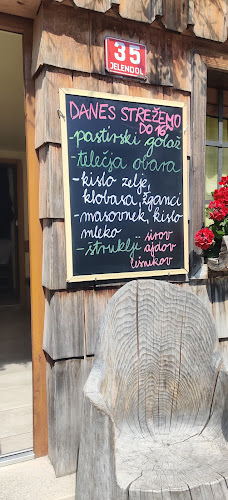 35
JELENDOL
DANES STREŽEMO
DO 16h
-pastirski golaž
-telečja obara
-kislo zelje,
klobasa, žganci
-masovnek, kislo
mleko
-štruklji sirov
ajdov
lešnikov